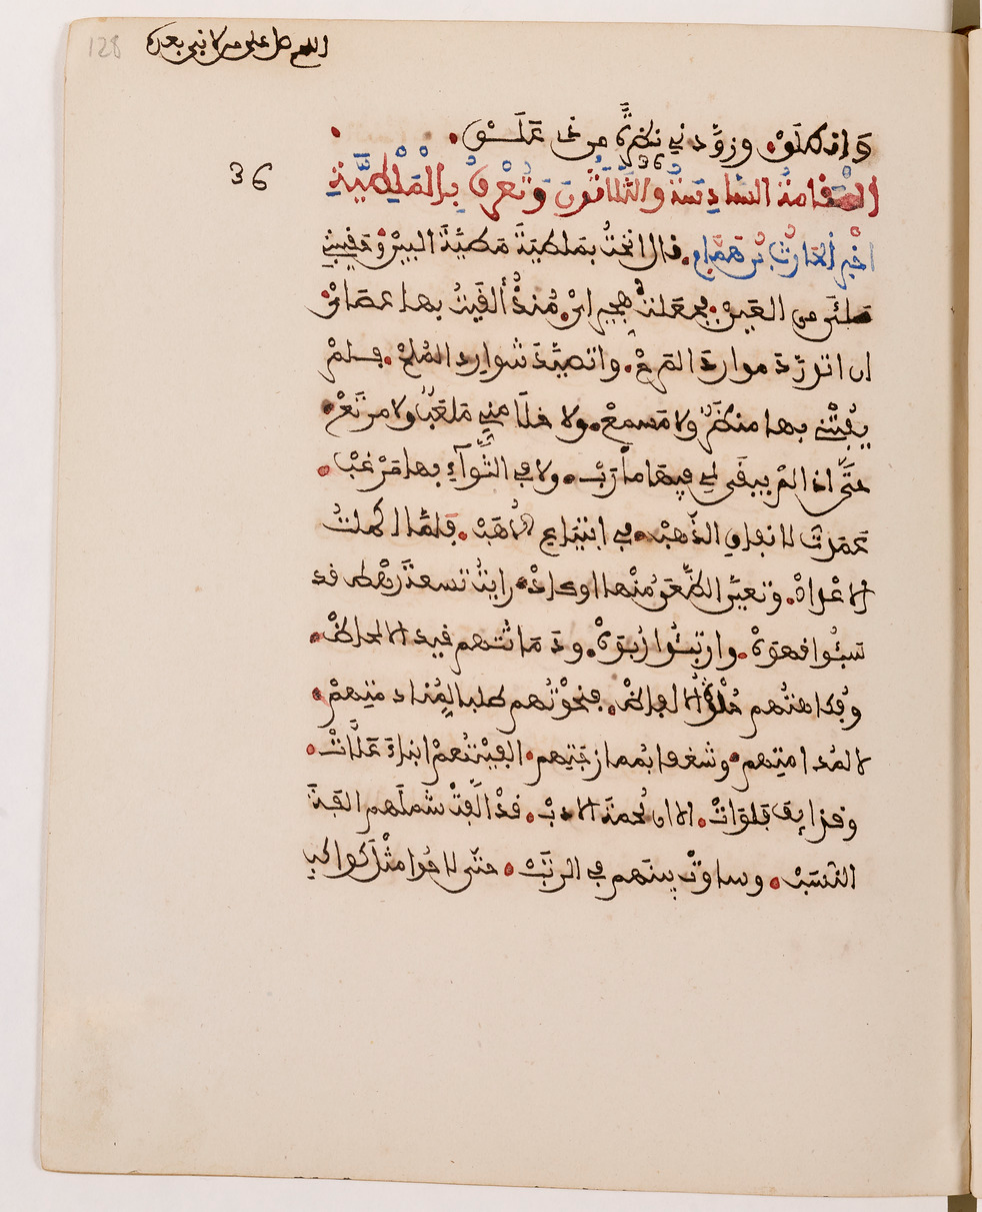 128
اللهم صل على من لا نبي بعده
وانطلق وزودني نظرة من ذي علق
36
36
المقامة السادسة والثلاثون وتعرف بالملطية
اخبر الحارث بن همام قال انخت بملطية مطية البين وحقيبتي
ملئى من العين فجعلت هجيراي مُنذُ ألقيتُ بها عصاي
ان اتورد موارد المرح واتصيد شوارد المُلح فلم
يفُتني بها منظرٌ ولا مسمع ولا خلا مني ملعبٌ ولا مرتع
حتى اذا لم يبقى لي فيها مأرب ولا في الثوآء بها مرغب
عمدت لانفاق الذهب في ابتياع الأهب فلما اكملت
الاعداد وتهيأ الظعن منها او كاد رايتُ تسعة رهط قد
سبئوا قهوة وارتبئوا ربوة ودماثتهم قيد الالحاظ
وفكاهتهم حلوة الالفاظ فنحوتهم طلبا لمنادمتهم
لا لمدامتهم وشغفا بممازجتهم الفيتهم ابناء علات
وقذايف فلوات الا ان لُحمة الادب قد الّفت شملهم الفة
النسب وساوت بينهم في الرتب حتى لاحوا مثل كواكب